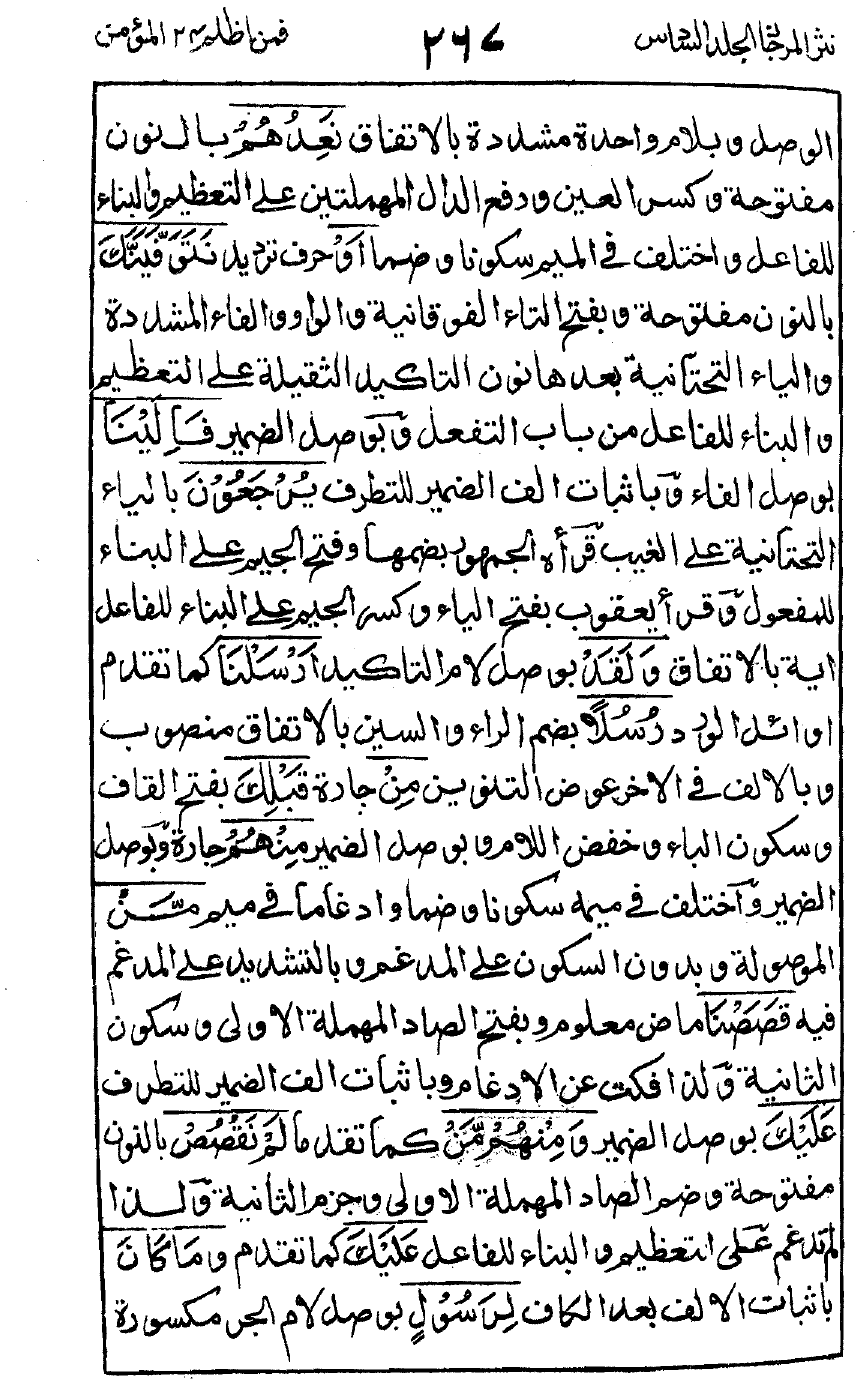 نثر المرجان الجلد السادس ٢٦٧ فمن اظلم ٢٤ المؤمن
الوصل و بلام واحدة مشددة بالاتفاق نَعِدُهُمُ بالنون
مفتوحة و كسر العين ورفع الدال المهملتين على التعظيم والبناء
للفاعل و اختلف في الميم سكونا و ضما أَوْ حرف ترديد نَتَوَفَّيَنَّكَ
بالنون مفتوحة و بفتح التاء الفوقانية والواو والفاء المشددة
والياء التحتانية بعدها نون التاكيد الثقيلة على التعظيم
والبناء للفاعل من باب التفعل و بوصل الضمير فَاِلَيْنَا
بوصل الفاء و باثبات الف الضمير للتطرف يُرْجَعُوْنَ بالياء
التحتانية على الغيب قرأه الجمهور بضمها و فتح الجيم على البناء
للمفعول و قرأ يعقوب بفتح الياء و كسر الجيم على البناء للفاعل
اية بالاتفاق وَلَقَدْ بوصل لام التاكيد اَرْسَلْنَا كما تقدم
اوائل الورد رُسُلًا بضم الراء والسين بالاتفاق منصوب
و بالالف في الاخر عوض التنوين مِنْ جارة قَبْلِكَ بفتح القاف
و سكون الباء و خفض اللام و بوصل الضمير مِنْهُمْ جارة و بوصل
الضمير و اختلف في ميمه سكونا و ضما و ادغاما في ميم مَّنْ
الموصولة و بدون السكون على المدغم و بالتشديد على المدغم
فيه قَصَصْنَا ماض معلوم و بفتح الصاد المهملة الاولى و سكون
الثانية و لذا فكت عن الادغام و باثبات الف الضمير للتطرف
عَلَيْكَ بوصل الضمير وَمِنْهُمْ مَّنْ كما تقدم لَمْ نَقْصُصْ بالنون
مفتوحة و ضم الصاد المهملة الاولى و جزم الثانية و لذا
لم تدغم على التعظيم والبناء للفاعل عَلَيْكَ كما تقدم وَمَا كَانَ
باثبات الالف بعد الكاف لِرَسُوْلٍ بوصل لام الجر مكسورة